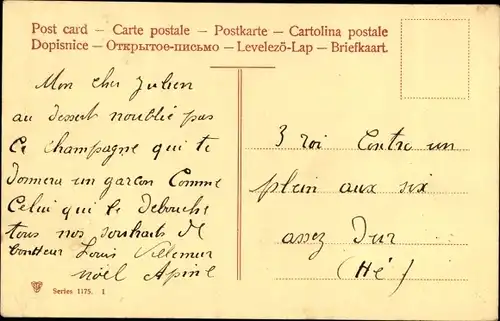 Post card – Carte postale – Postkarte – Cartolina postale
Dopisnice – Открытое-письмо – Levelező-Lap – Briefkaart.
Mon cher Julien
au dessert noublie pas
Ce champagne qui te
donnera un garcon Comme
Celui qui te debouche
tous nos souhaits de
bonheur Louis Villemur
noël Apine
3 roi Contre un
plein aux six
assez Dur
(Hé)
Series 1175. 1